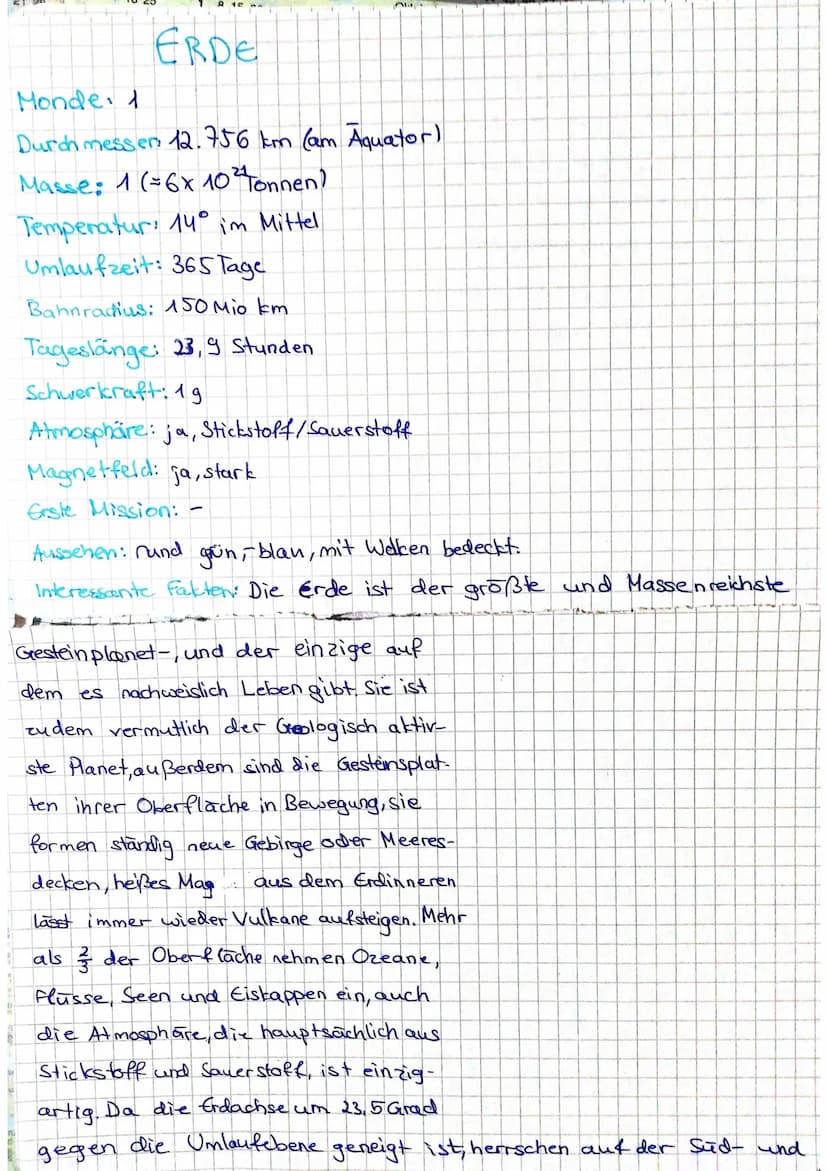 ERDE
Monde: 1
Durchmesser: 12.756 km (am Äquator)
Masse: 1 (=6x 10²¹ Tonnen)
Temperatur: 14° im Mittel
Umlaufzeit: 365 Tage
Bahnradius: 150 Mio km
Tageslänge: 23,9 Stunden
Schwerkraft: 1g
Atmosphäre: ja, Stickstoff/Sauerstoff
Magnetfeld: ja, stark
Erste Mission: -
Aussehen: rund grün,-blau, mit Wolken bedeckt.
Interessante Fakten: Die Erde ist der größte und Massenreichste
Gesteinplanet-, und der einzige auf
dem es nachweislich Leben gibt. Sie ist
zudem vermutlich der Geologisch aktiv-
ste Planet, außerdem sind die Gesteinsplat-
ten ihrer Oberfläche in Bewegung, sie
formen ständig neue Gebirge oder Meeres-
decken, heißes Mag aus dem Erdinneren
lässt immer wieder Vulkane aufsteigen. Mehr
als 2/3 der Oberfläche nehmen Ozeane,
Flüsse, Seen und Eiskappen ein, auch
die Atmosphäre, die hauptsächlich aus
Stickstoff und Sauerstoff, ist einzig-
artig. Da die Erdachse um 23,5 Grad
gegen die Umlaufebene geneigt ist, herrschen auf der Süd- und